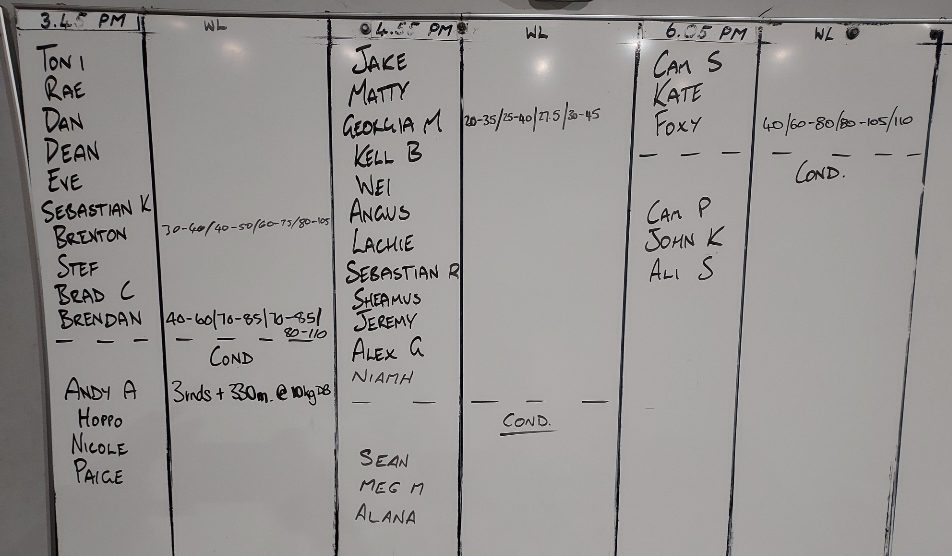 3.45 PM
WL
TONI
RAE
DAN
DEAN
EVE
SEBASTIAN K
BRENTON 30-40/40-50/60-75/80-105
STEF
BRAD C
BRENDAN 40-60/70-85/70-85/
80-110
COND
ANDY A 3rnds + 330m. @ 10kg DB
HOPPO
NICOLE
PAIGE
4.55 PM
WL
JAKE
MATTY
GEORGIA M 20-35/25-40/27.5/30-45
KELL B
WEI
ANGUS
LACHIE
SEBASTIAN R
SHEAMUS
JEREMY
ALEX G
NIAMH
COND.
SEAN
MEG M
ALANA
6.05 PM
WL
CAM S
KATE
FOXY 40/60-80/80-105/110
COND.
CAM P
JOHN K
ALI S